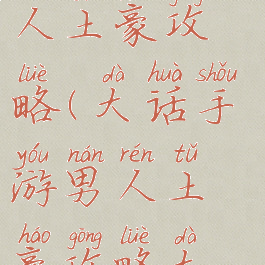 人土豪攻
lüè dà huà shǒu
略(大话手
yóu nán rén tǔ
游男人土
háo gōng lüè dà
豪攻略大